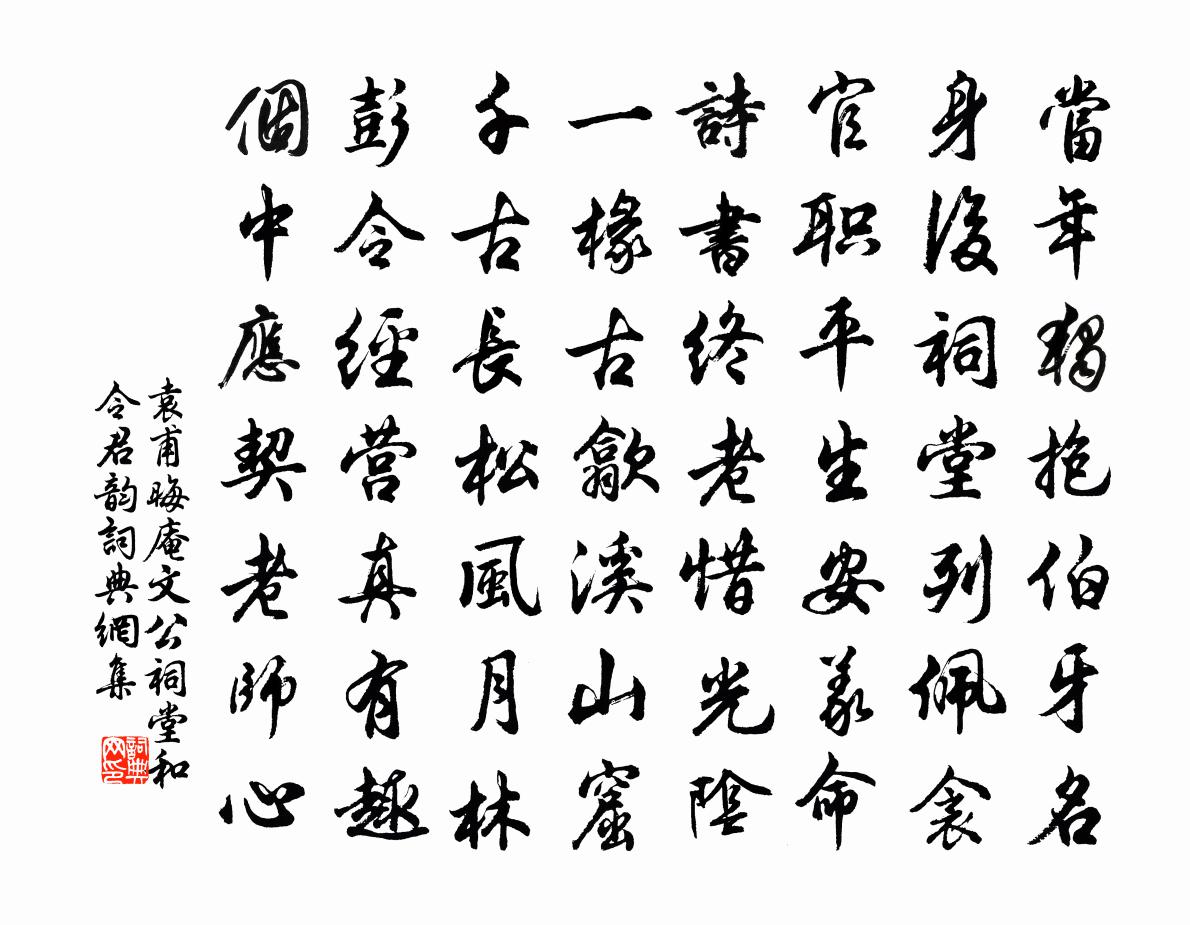 當年獨抱伯牙名
身後祠堂列佩衾
官职平生安義命
詩書终老惜光陰
一椽古歙溪山窟
千古長松風月林
彭令經营真有趣
個中應契老師心
袁甫晦庵文公祠堂和
令君韵詞典網集
詞典网印